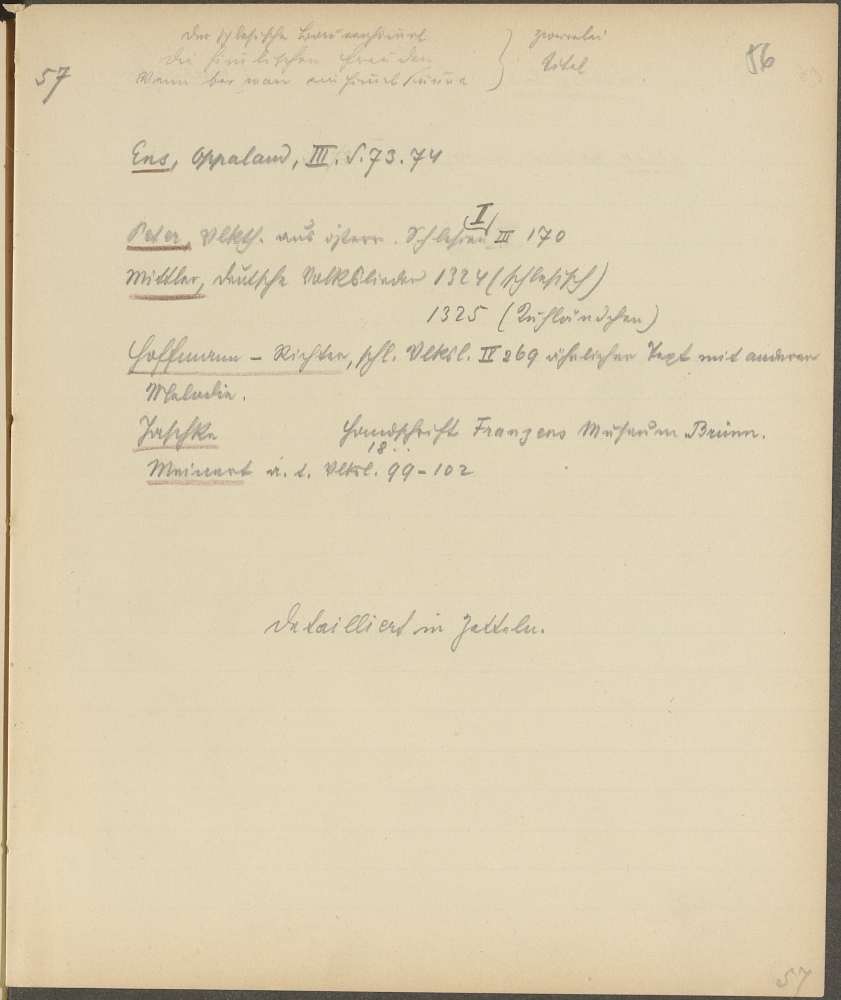 Der schlesische Bauernhimmel zweierlei
Die himlischen Freuden Titel
Wenn ber wan ai Himel
57 56
Ens, Oppaland, III. S. 73. 74
I
Peter, Vlksth. aus österr. Schlesien III 170
Mittler, deutsche Volkslieder 1324 (schlesisch)
1325 (Kuhländchen)
Hoffmann - Richter, schl. Vlksl. IV 269 ähnlicher Text mit anderer
Melodie.
Jaschke Handschrift Franzens Museum Brünn.
18..
Meinert a. d. Vlksl. 99-102
Detailliert in Zetteln.
57